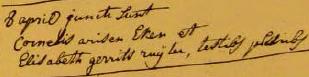 8 april juncti sunt
Cornelis arisen Eken et
Elisabeth gerrits ruijter, testibus